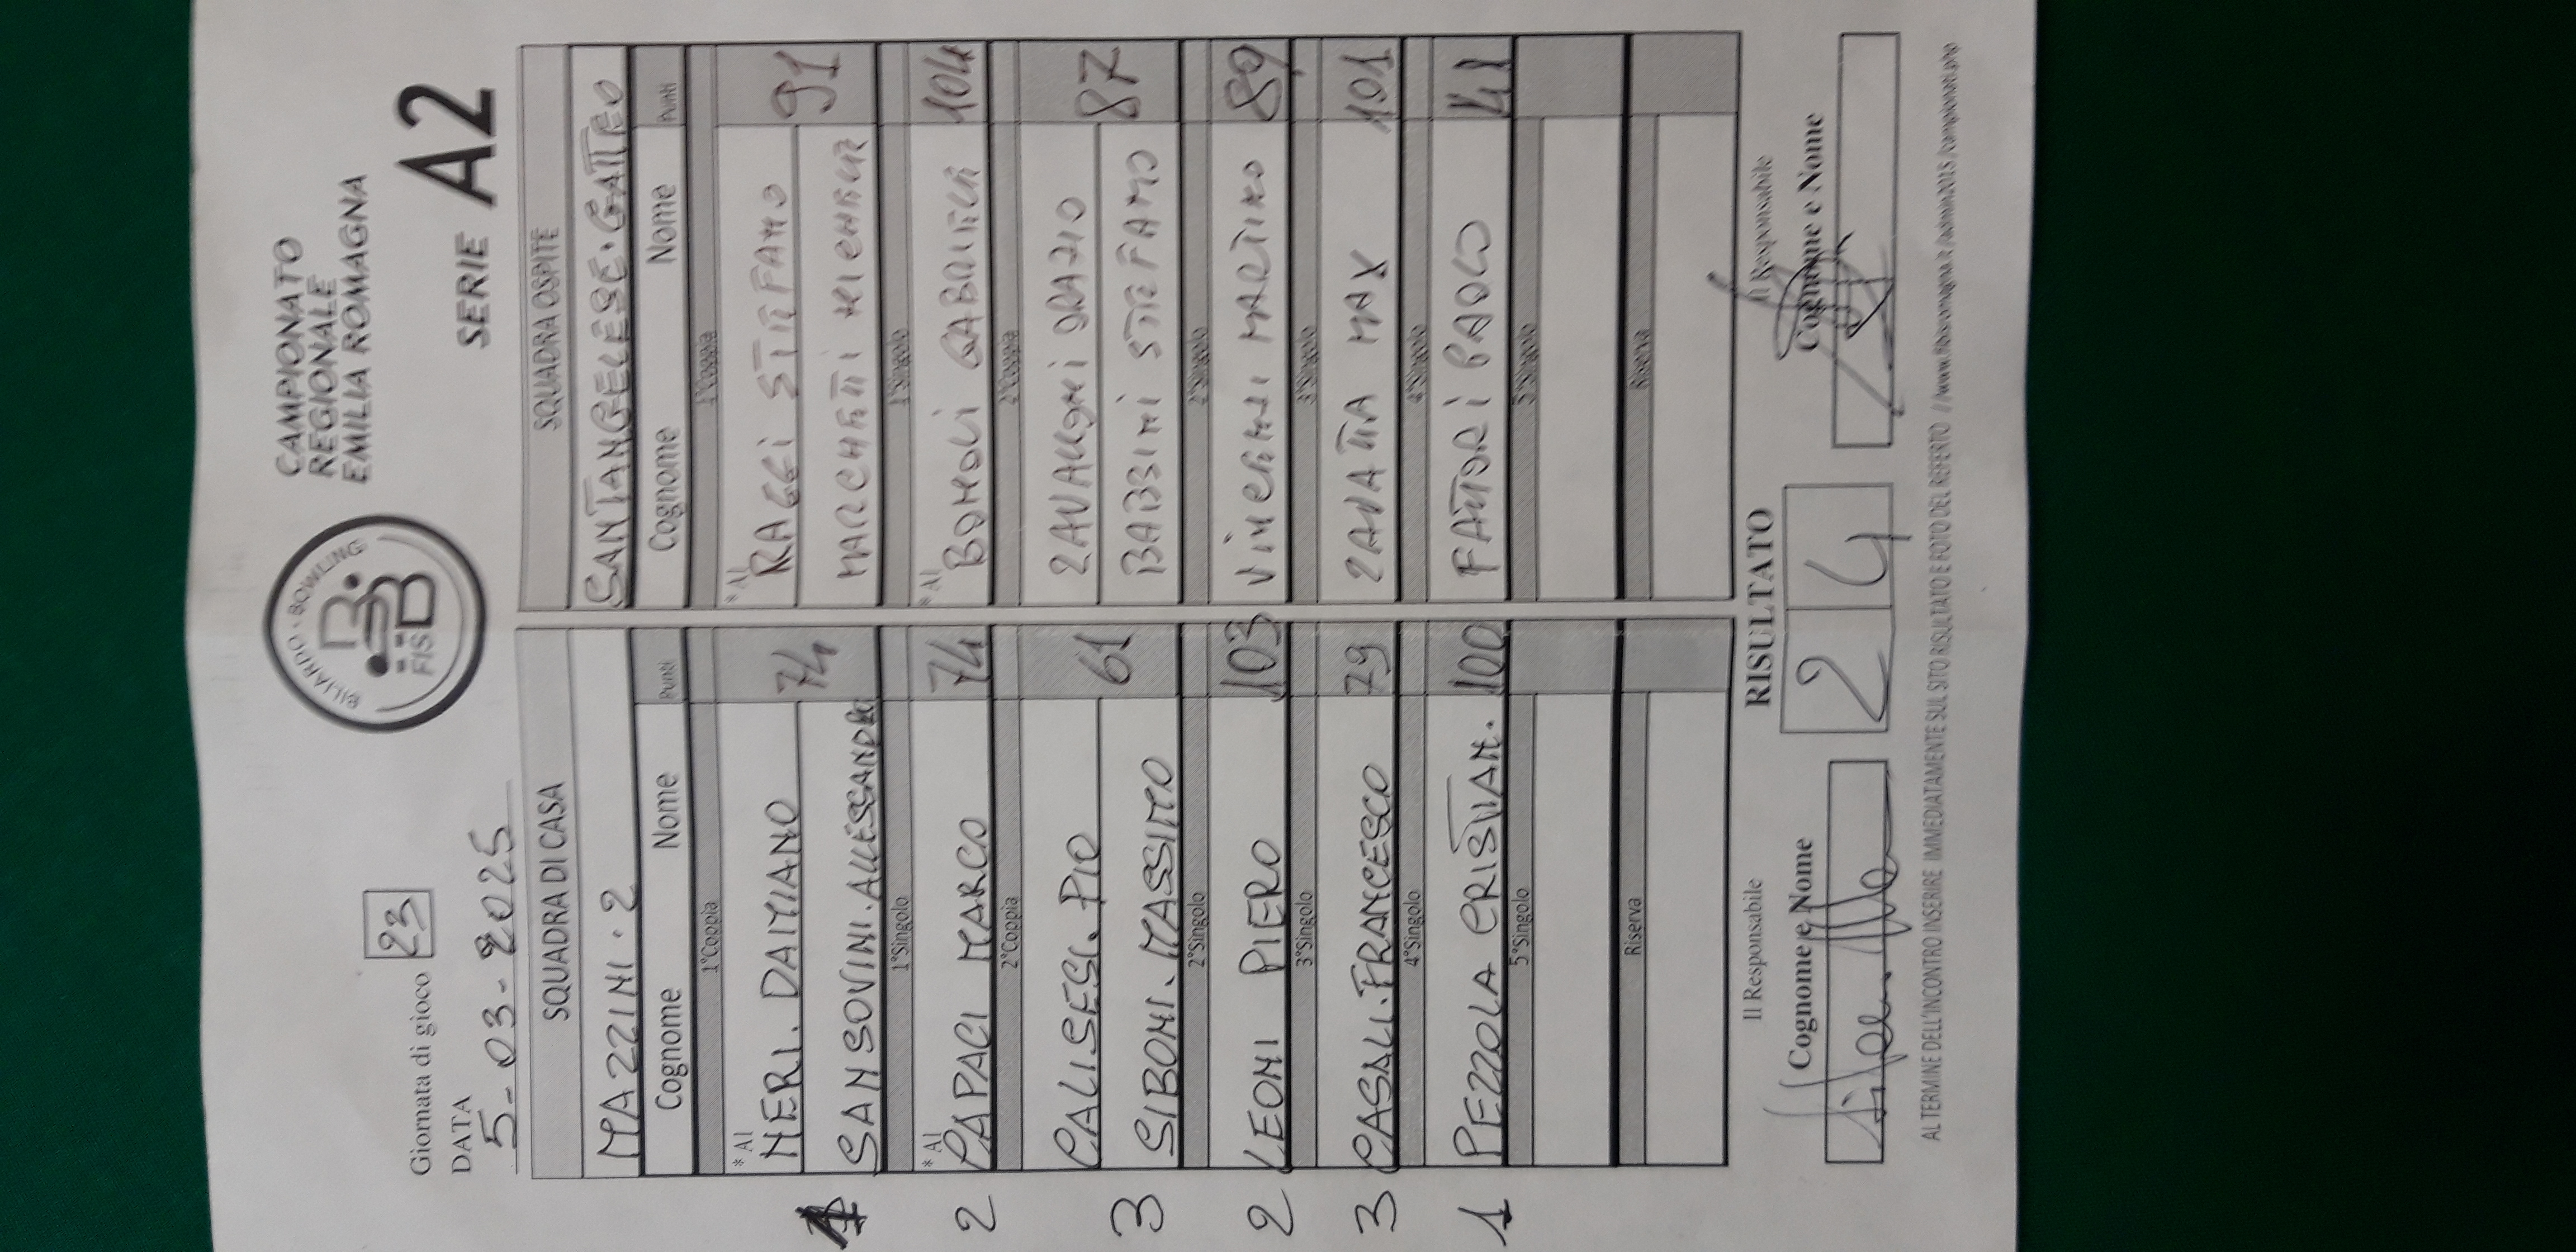 CAMPIONATO
REGIONALE
EMILIA ROMAGNA
SERIE A2
BILIARDO · BOWLING
FISBB
Giornata di gioco 23
DATA
5-03-2025
SQUADRA DI CASA SQUADRA OSPITE
MAZZINI · 2 SANTANGELESE · GATTEO
Cognome Nome Punti Cognome Nome Punti
1°Coppia 1°Coppia
*A1 *A1
NERI. DAMIANO 74 RAGGI STEFANO 91
1 SANSOVINI. ALLESSANDRO MARCHETTI MICHAEL
1°Singolo 1°Singolo
*A1 *A1
2 CAPACI MARCO 74 BONOLI GABRIELE 104
2°Coppia 2°Coppia
CALISESI. PIO 61 ZAVALLONI ORAZIO 87
3 SIBONI. MASSIMO BABBINI STEFANO
2°Singolo 2°Singolo
2 LEONI PIERO 103 VINCENZI MARTINO 89
3°Singolo 3°Singolo
3 CASALI. FRANCESCO 79 ZAVATTA MAX 101
4°Singolo 4°Singolo
1 PEZZOLA CRISTIAN. 100 FATTORI PAOLO 41
5°Singolo 5°Singolo
Riserva Riserva
Il Responsabile RISULTATO Il Responsabile
Cognome e Nome 2 4 Cognome e Nome
AL TERMINE DELL'INCONTRO INSERIRE IMMEDIATAMENTE SUL SITO RISULTATO E FOTO DEL REFERTO